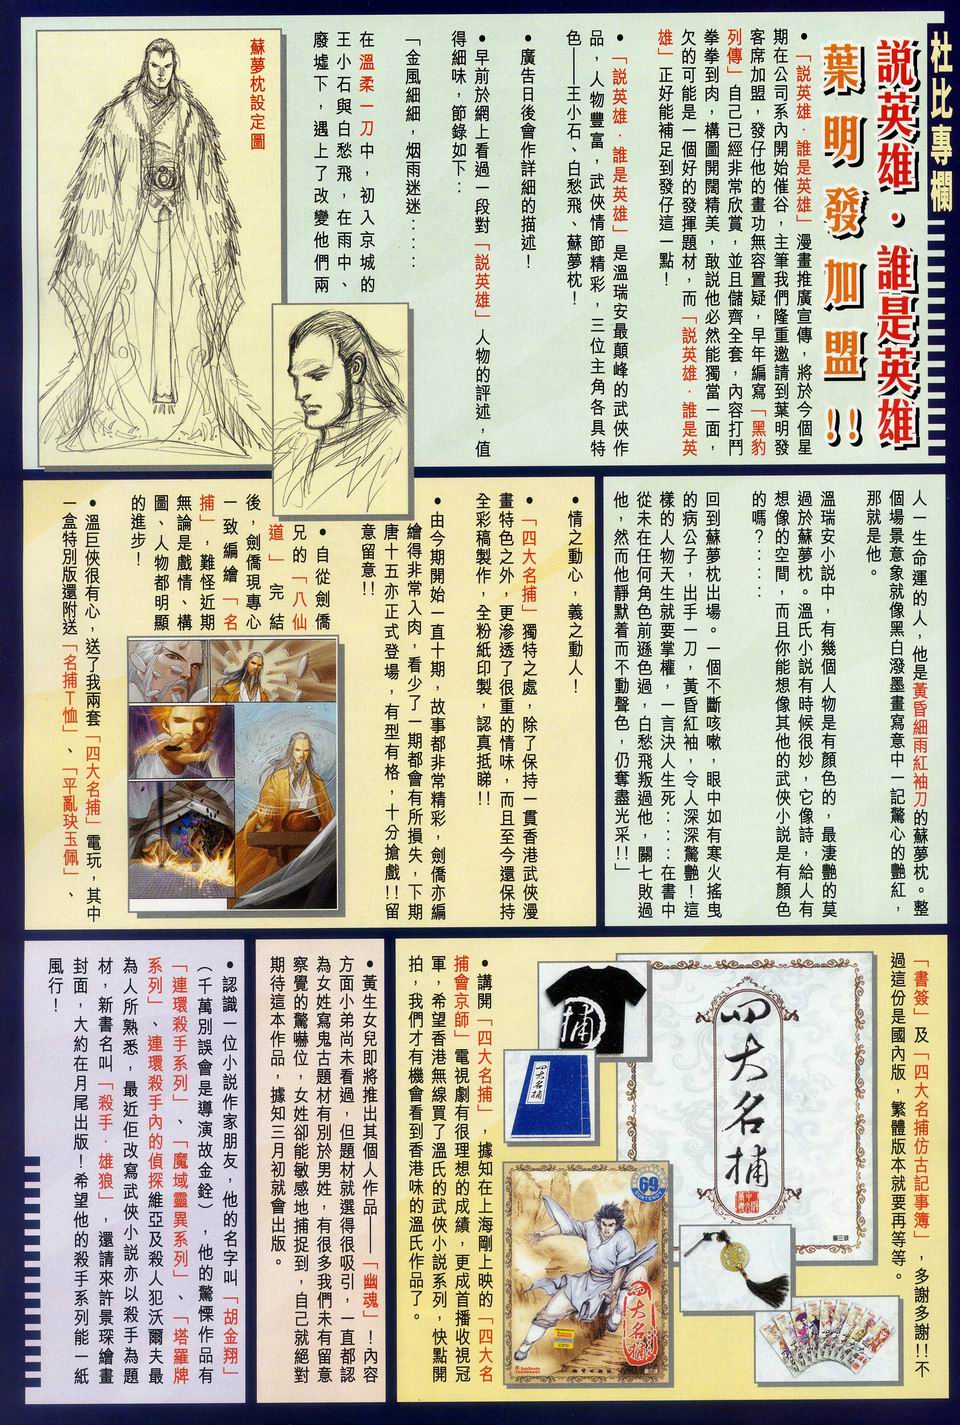 杜比專欄
說英雄．誰是英雄
葉明發加盟！！
●「説英雄．誰是英雄」漫畫推廣宣傳，將於今個星
期在公司系內開始催谷，主筆我們隆重邀請到葉明發
客席加盟，發仔他的畫功無容置疑，早年編寫「黑豹
列傳」自己已經非常欣賞，並且儲齊全套，內容打鬥
拳拳到肉，構圖開闊精美，敢説他必然能獨當一面，
欠的可能是一個好的發揮題材，而「説英雄．誰是英
雄」正好能補足到發仔這一點！
●「説英雄．誰是英雄」是溫瑞安最顛峰的武俠作
品，人物豐富，武俠情節精彩，三位主角各具特
色——王小石、白愁飛、蘇夢枕！
●廣告日後會作詳細的描述！
●早前於網上看過一段對「説英雄」人物的評述，值
得細味，節錄如下：
「金風細細，烟雨迷迷：：：
在溫柔一刀中，初入京城的
王小石與白愁飛，在雨中、
廢墟下，遇上了改變他們兩
蘇夢枕設定圖
人一生命運的人，他是黃昏細雨紅袖刀的蘇夢枕。整
個場景意象就像黑白潑墨畫寫意中一記驚心的艷紅，
那就是他。
溫瑞安小説中，有幾個人物是有顏色的，最淒艷的莫
過於蘇夢枕。溫氏小説有時候很妙，它像詩，給人有
想像的空間，而且你能想像其他的武俠小説是有顏色
的嗎？：：：
回到蘇夢枕出場。一個不斷咳嗽，眼中如有寒火搖曳
的病公子，出手一刀，黃昏紅袖，令人深深驚艷！這
樣的人物天生就要掌權，一言決人生死：：：在書中
從未在任何角色前遜色過，白愁飛叛過他，關七敗過
他，然而他靜默着而不動聲色，仍奪盡光采！！」
●情之動心，義之動人！
●「四大名捕」獨特之處，除了保持一貫香港武俠漫
畫特色之外，更滲透了很重的情味，而且至今還保持
全彩稿製作，全粉紙印製，認真抵睇！！
●由今期開始一直十期，故事都非常精彩，劍僑亦編
繪得非常入肉，看少了一期都會有所損失，下期
唐十五亦正式登場，有型有格，十分搶戲！！留
意留意！！
●自從劍僑
兄的「八仙
道」完結
後，劍僑現專心
一致編繪「名
捕」，難怪近期
無論是戲情、構
圖、人物都明顯
的進步！
●溫巨俠很有心，送了我兩套「四大名捕」電玩，其中
一盒特別版還附送「名捕T恤」、「平亂玦玉佩」、
「書簽」及「四大名捕仿古記事簿」，多謝多謝！！不
過這份是國內版，繁體版本就要再等等。
四大名捕
捕
四大名捕
69
四大名捕
●講開「四大名捕」，據知在上海剛上映的「四大名
捕會京師」電視劇有很理想的成績，更成首播收視冠
軍，希望香港無線買了溫氏的武俠小説系列，快點開
拍，我們才有機會看到香港味的溫氏作品了。
●黃生女兒即將推出其個人作品——「幽魂」！內容
方面小弟尚未看過，但題材就選得很吸引，一直都認
為女姓寫鬼古題材有別於男姓，有很多我們未有留意
察覺的驚嚇位，女姓卻能敏感地捕捉到，自己就絕對
期待這本作品，據知三月初就會出版。
●認識一位小説作家朋友，他的名字叫「胡金翔」
（千萬別誤會是導演故金銓），他的驚慄作品有
「連環殺手系列」、「魔域靈異系列」、「塔羅牌
系列」、連環殺手內的偵探維亞及殺人犯沃爾夫最
為人所熟悉，最近佢改寫武俠小説亦以殺手為題
材，新書名叫「殺手．雄狼」，還請來許景琛繪畫
封面，大約在月尾出版！希望他的殺手系列能一紙
風行！